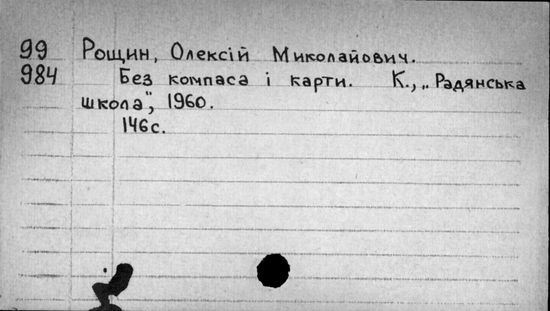 99 Рощин, Олексій Миколайович.
984 Без компаса і карти. К., „Радянська
школа", 1960.
146с.